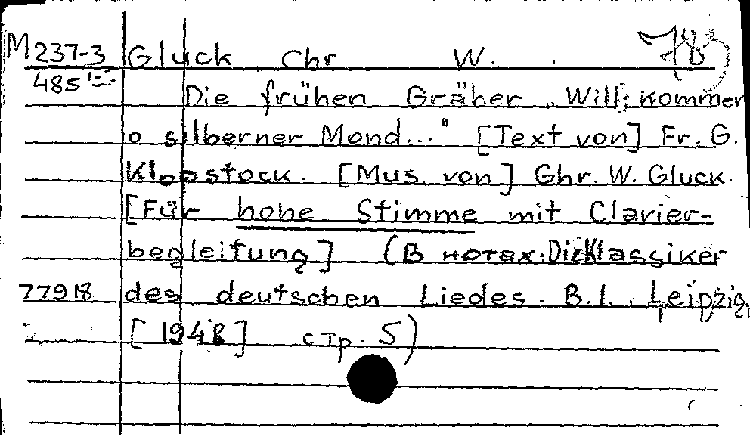 M237-3 Gluck Chr W. 783
485 Die frühen Gräber „Willkommen
o silberner Mond..." [Text von] Fr. G.
Klopstock. [Mus. von] Chr. W. Gluck.
[Für hohe Stimme mit Clavier-
begleitung] (В нотах: Die Klassiker
77918 des deutschen Liedes. B.I. Leipzig,
[1948] стр. 5)